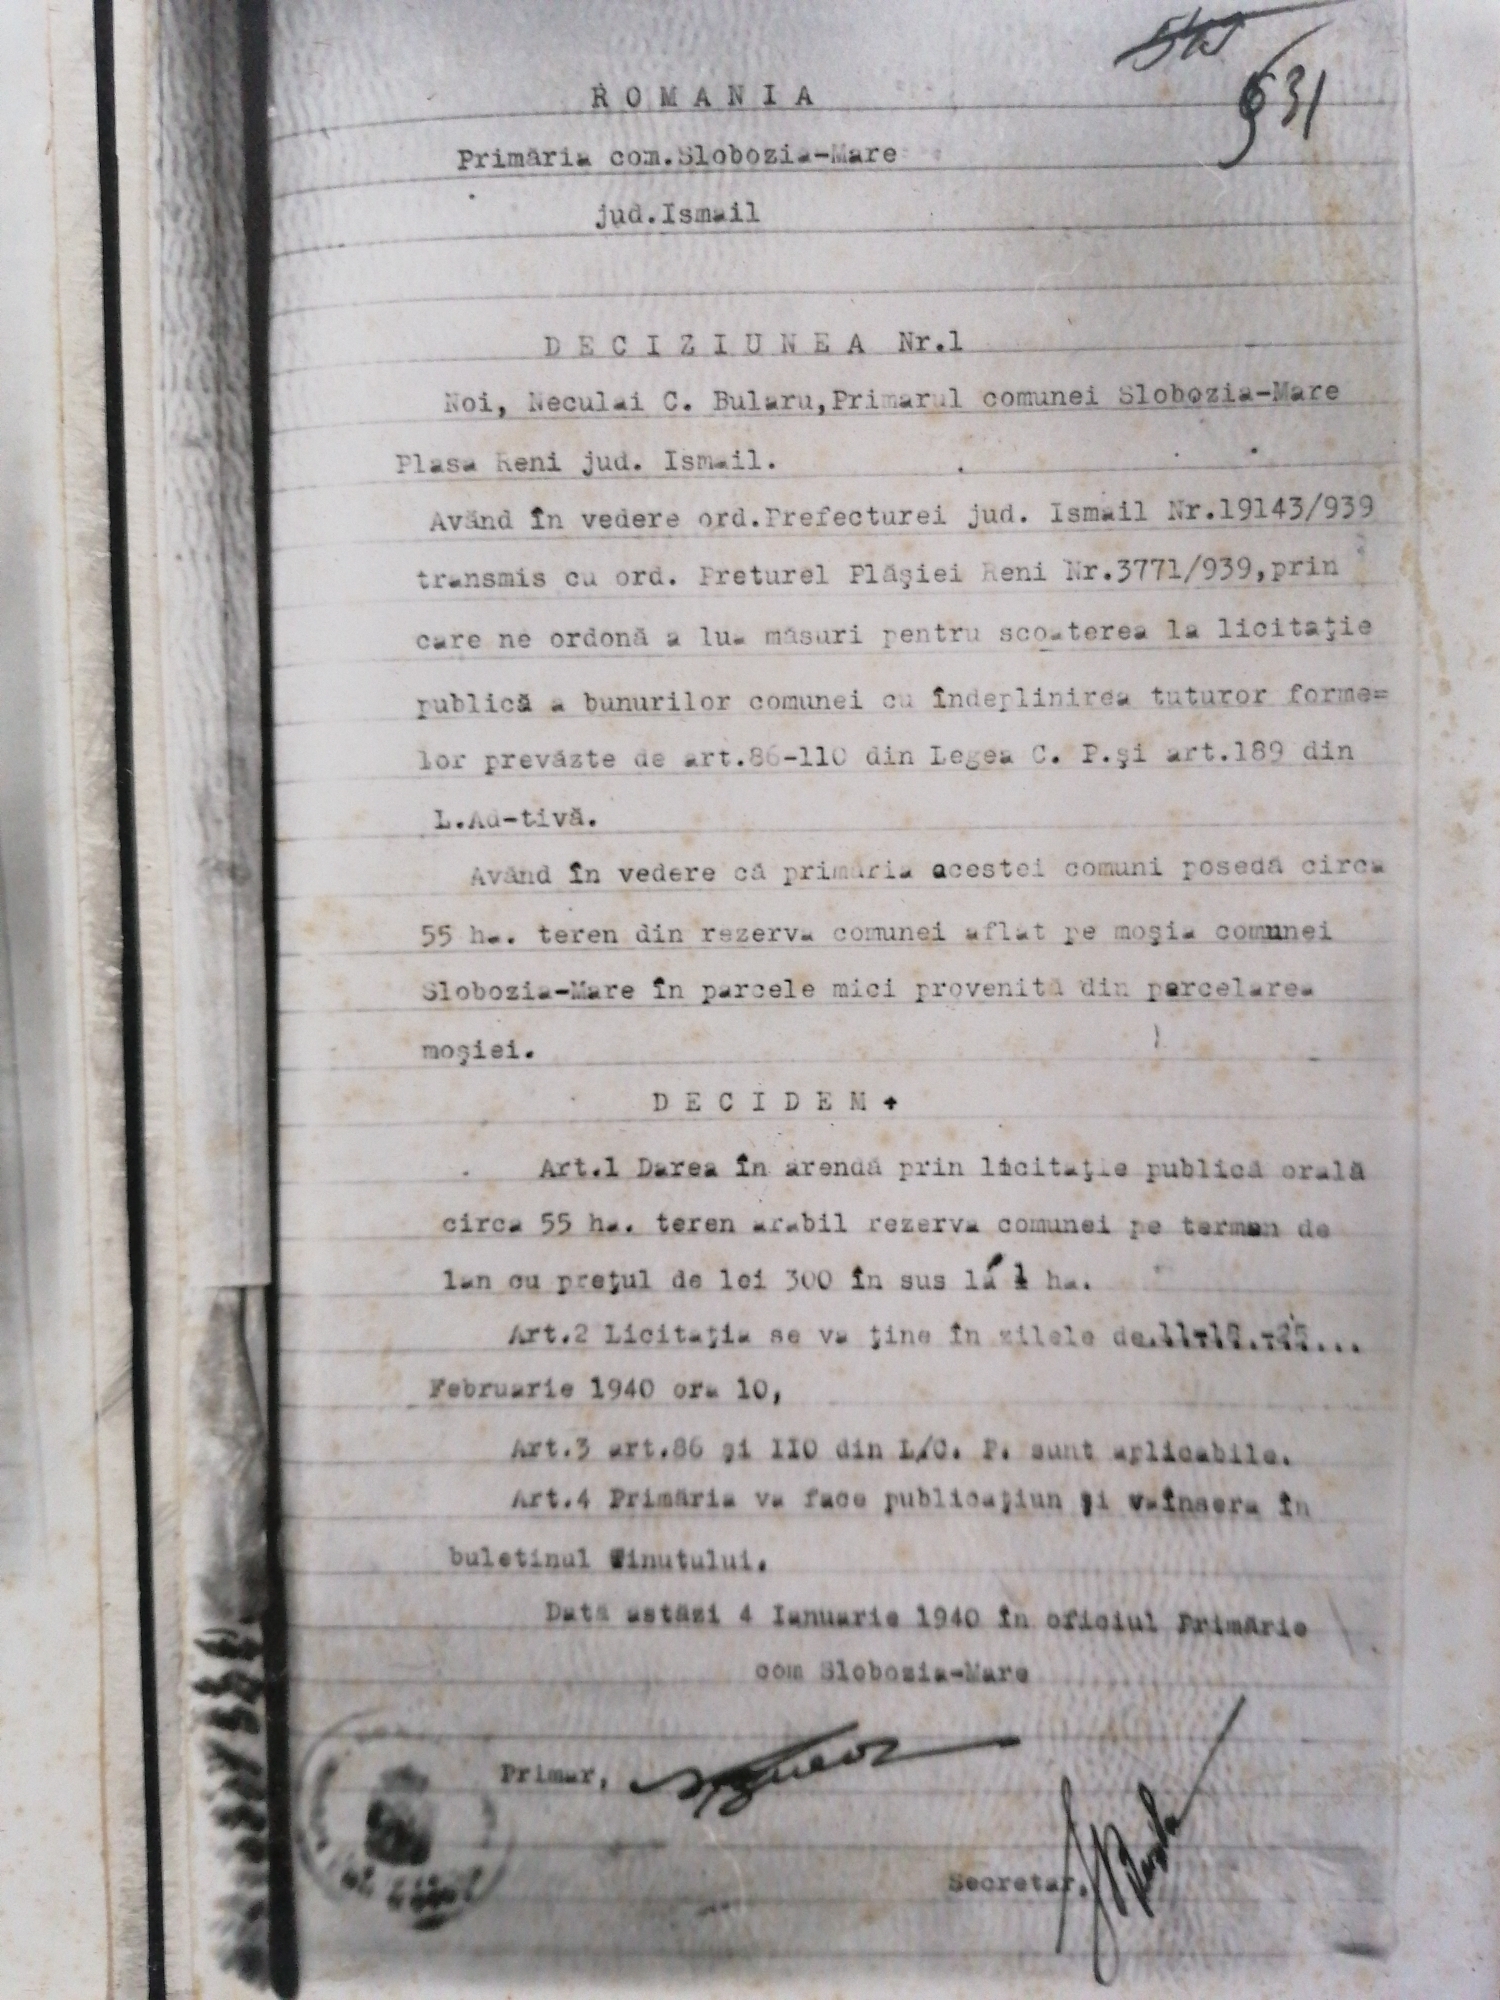 531
R O M A N I A
Primăria com.Slobozia-Mare
jud.Ismail
D E C I Z I U N E A Nr.1
Noi, Neculai C. Bularu,Primarul comunei Slobozia-Mare
Plasa Reni jud. Ismail.
Având în vedere ord.Prefecturei jud. Ismail Nr.19143/939
transmis cu ord. Preturel Plăşiei Reni Nr.3771/939,prin
care ne ordonă a lua măsuri pentru scoaterea la licitaţie
publică a bunurilor comunei cu îndeplinirea tuturor forme=
lor prevăzte de art.86-110 din Legea C. P.şi art.189 din
L.Ad-tivă.
Având în vedere că primăria acestei comuni posedă circa
55 ha. teren din rezerva comunei aflat pe moşia comunei
Slobozia-Mare în parcele mici provenită din parcelarea
moşiei.
D E C I D E M
Art.1 Darea în arendă prin licitaţie publică orală
circa 55 ha. teren arabil rezerva comunei pe termen de
1an cu preţul de lei 300 în sus la 1 ha.
Art.2 Licitaţia se va ţine în zilele de
Februarie 1940 ora 10,
Art.3 art.86 şi IIO din L/C. P. sunt aplicabile.
Art.4 Primăria va face publicaţiun şi vaînsera în
buletinul Ţinutului.
Dată astăzi 4 Ianuarie 1940 în oficiul Primărie
com Slobozia-Mare
Primar,
Secretar,